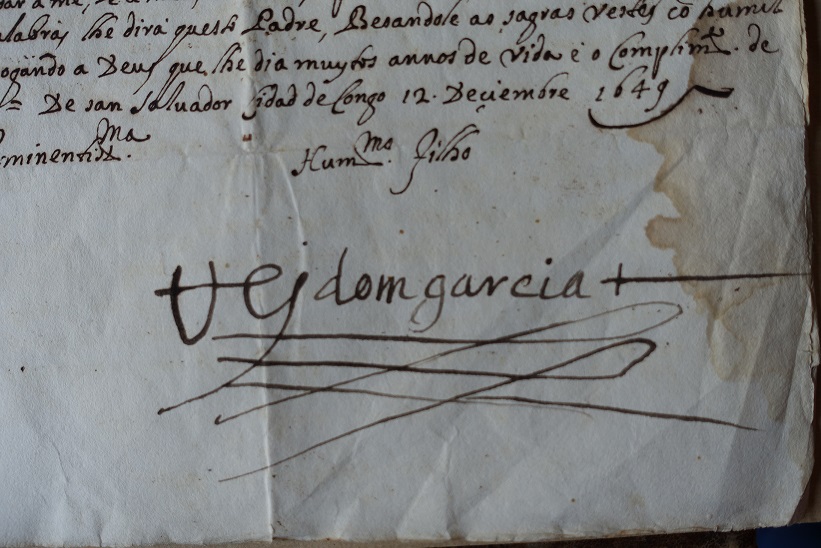 palabras lhe dirá queste Padre, Besandole as sagras vestes cõ humil
rogando a Deus que lhe dia muytos annos de vida e o Complimto. de
De san Salvador Cidad de Congo 12. Deçiembre 1649
Eminentidt.ma
Hummo. Filho
Rej dom garcia